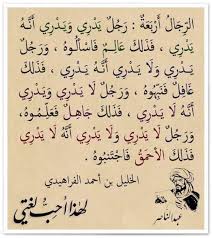 الرِّجَالُ أَرْبَعَةٌ : رَجُلٌ يَدْرِي وَيَدْرِي أَنَّهُ
يَدْرِي ، فَذَلِكَ عَالِمٌ فَاسْأَلُوهُ ، وَرَجُلٌ
يَدْرِي وَلَا يَدْرِي أَنَّهُ يَدْرِي ، فَذَلِكَ
غَافِلٌ فَنَبِّهُوهُ ، وَرَجُلٌ لَا يَدْرِي وَيَدْرِي
أَنَّهُ لَا يَدْرِي ، فَذَلِكَ جَاهِلٌ فَعَلِّمُوهُ ،
وَرَجُلٌ لَا يَدْرِي وَلَا يَدْرِي أَنَّهُ لَا يَدْرِي
فَذَلِكَ الأَحْمَقُ فَاجْتَنِبُوهُ .
الخليل بن أحمد الفراهيدي
لهذا أحب لغتي
عبدالناصر